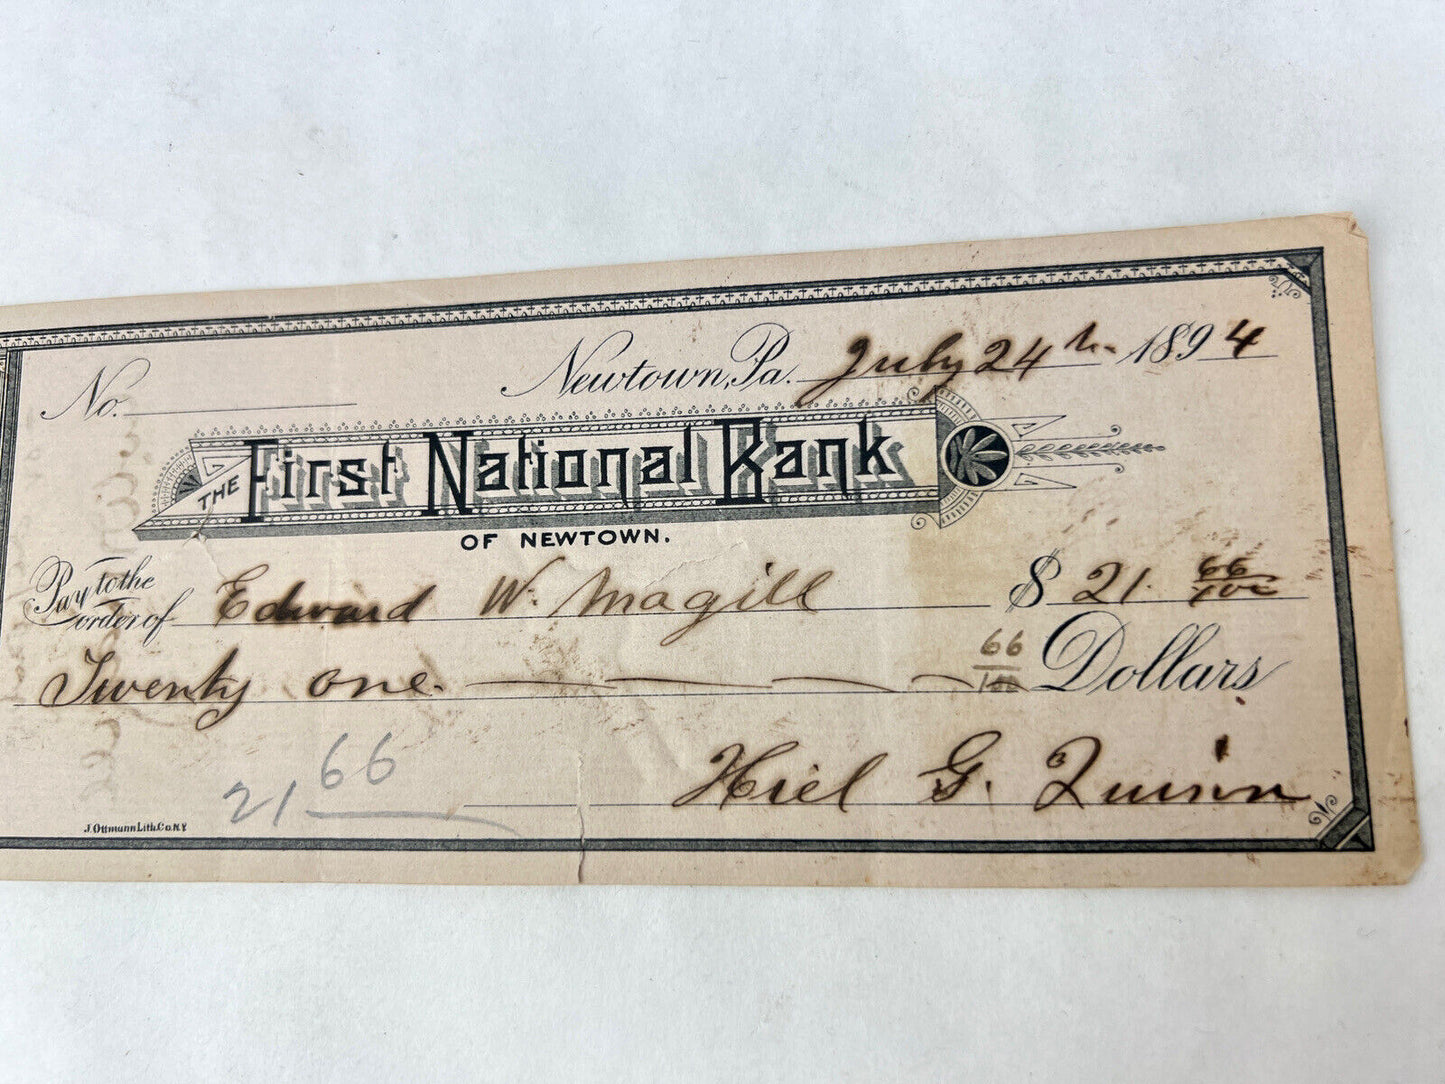 No. Newtown, Pa. July 24th 1894
THE First National Bank
OF NEWTOWN.
Pay to the order of Edward W. Magill $ 21. 66/100
Twenty one 66/100 Dollars
21 66
Hiel G. Quinn
J. Ottmann Lith. Co. N.Y.